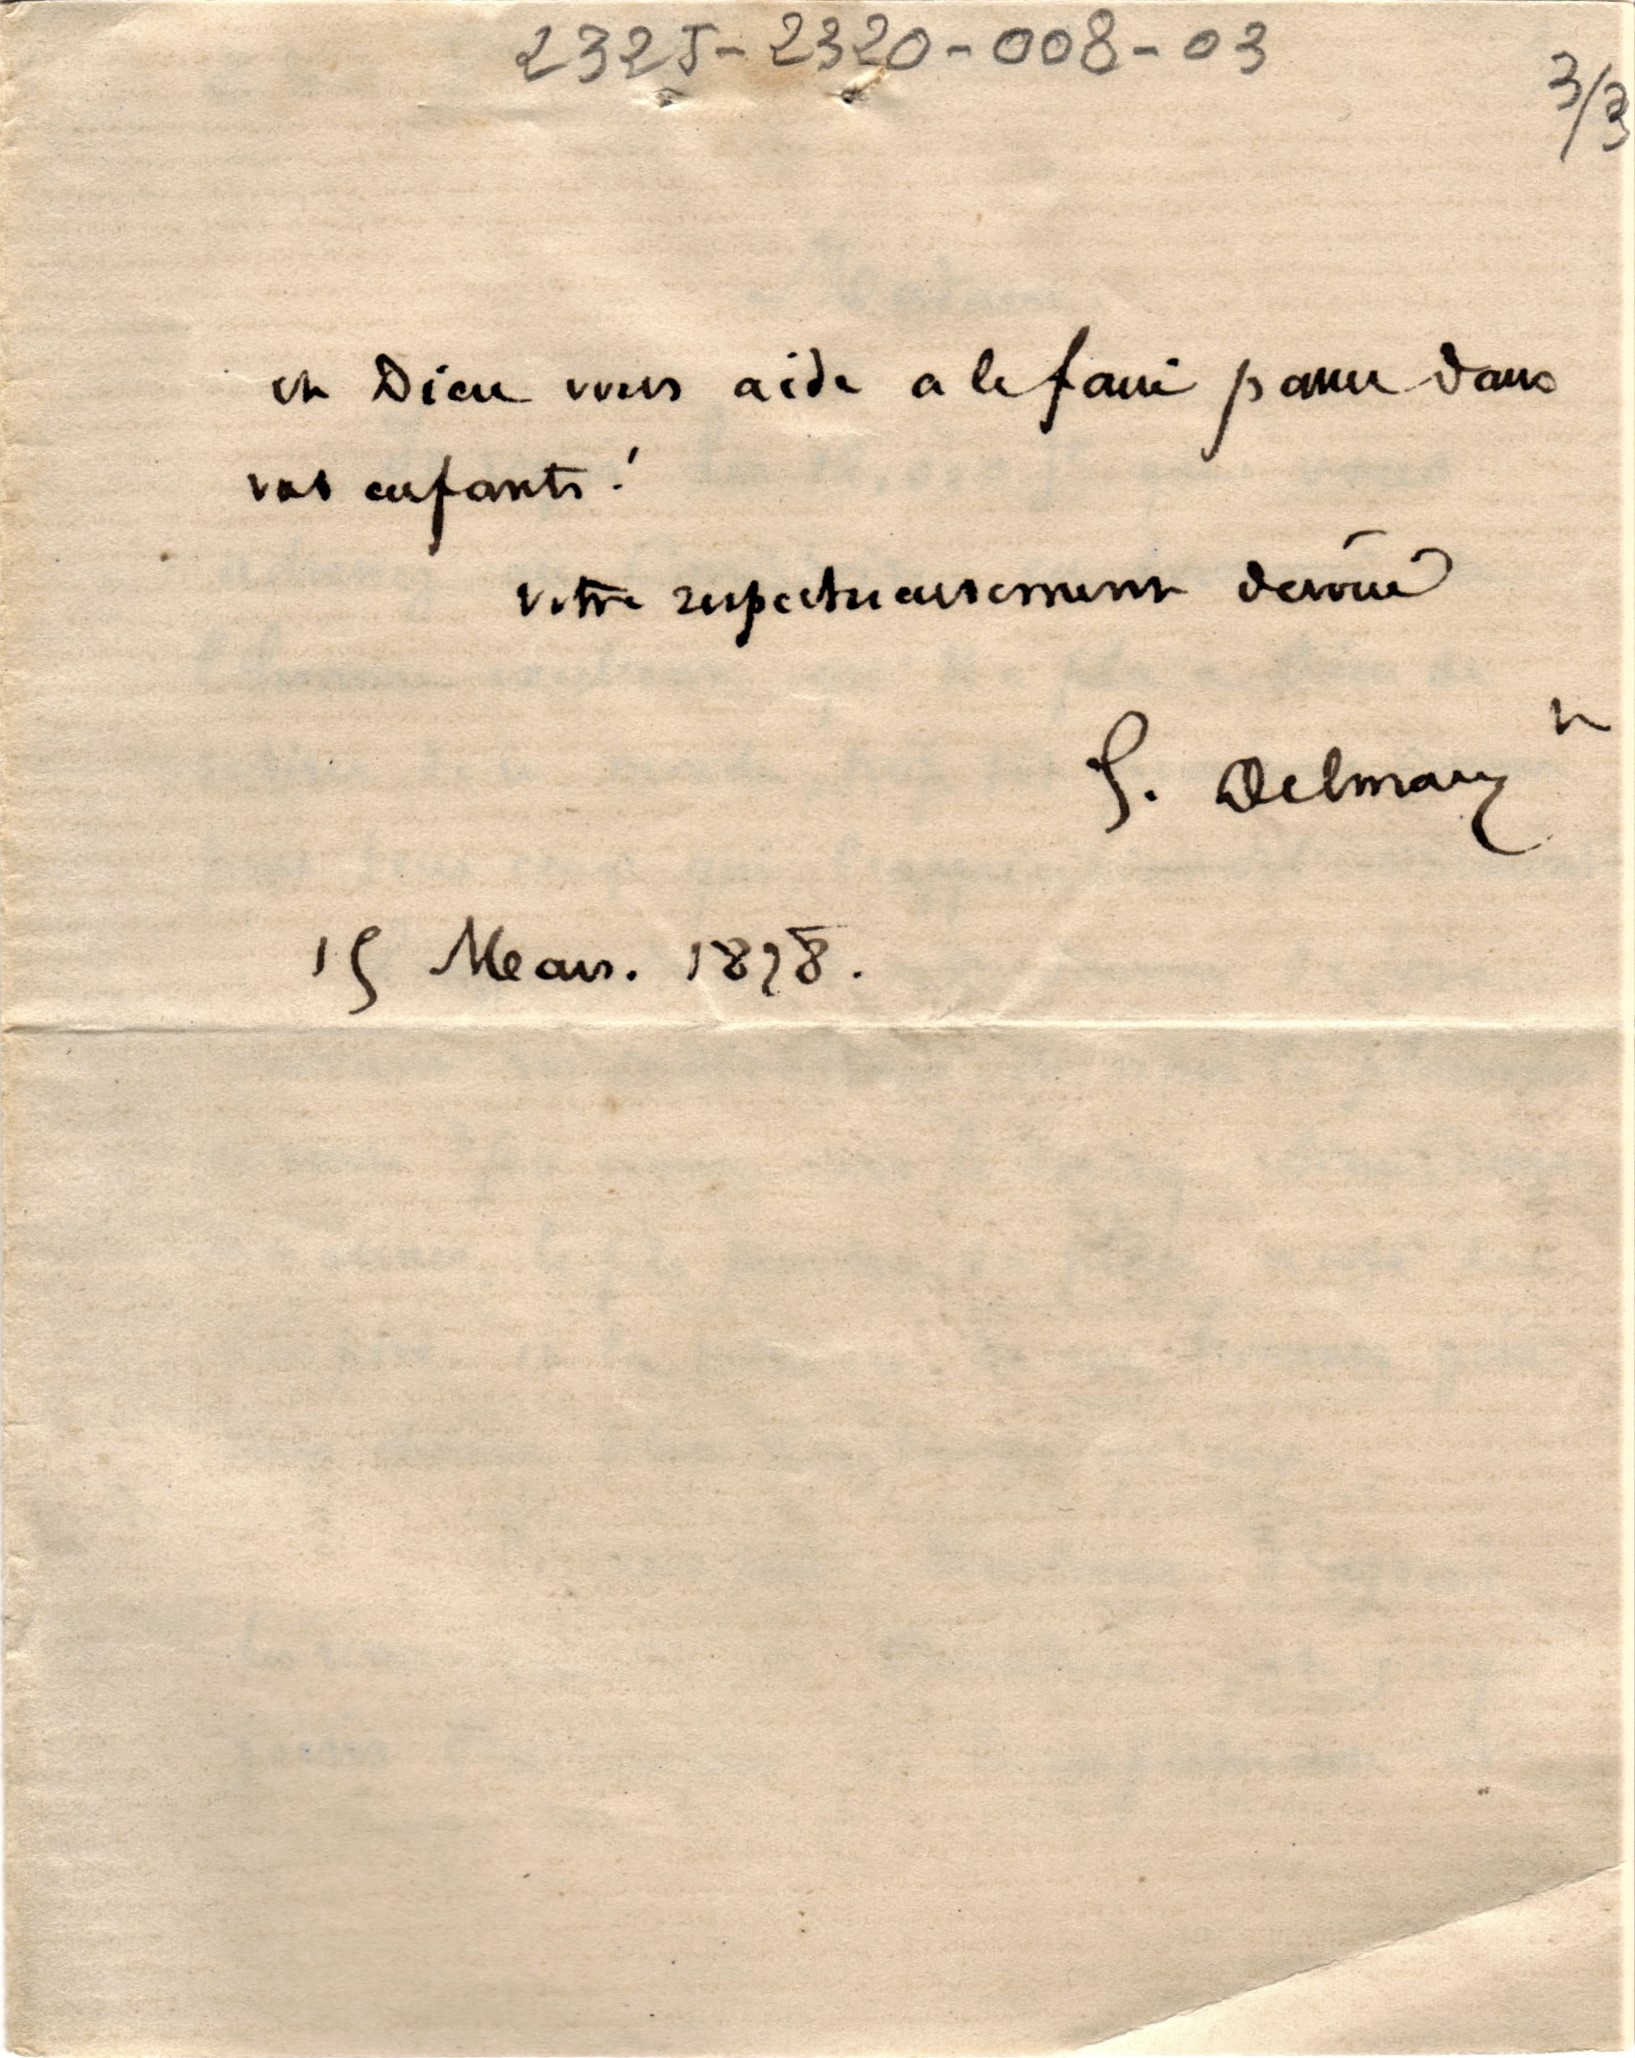 2325-2320-008-03
3/3
et Dieu vous aide a le faire passer dans
vos enfants!
votre respectueusement dévoué
G. Delmary
15 Mars. 1878.